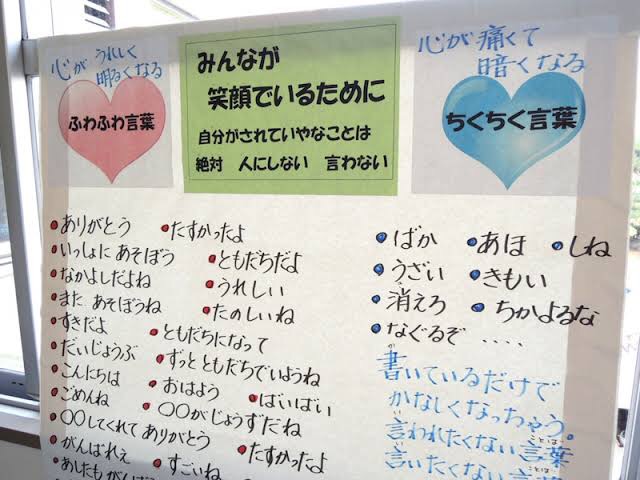 心が うれしく
明るくなる
ふわふわ言葉
みんなが
笑顔でいるために
自分がされていやなことは
絶対 人にしない 言わない
心が 痛くて
暗くなる
ちくちく言葉
ありがとう たすかったよ
いっしょに あそぼう ともだちだよ
なかよしだよね うれしい
また あそぼうね たのしいね
すきだよ ともだちになって
だいじょうぶ ずっと ともだちでいようね
こんにちは おはよう ばいばい
ごめんね 〇〇が じょうずだね
〇〇してくれて ありがとう たすかったよ
がんばれぇ すごいね
あしたも がんば
ばか あほ しね
うざい きもい
消えろ ちかよるな
なぐるぞ ‥‥
書いているだけで
かなしくなっちゃう。
言われたくない言葉
言いたくない言葉